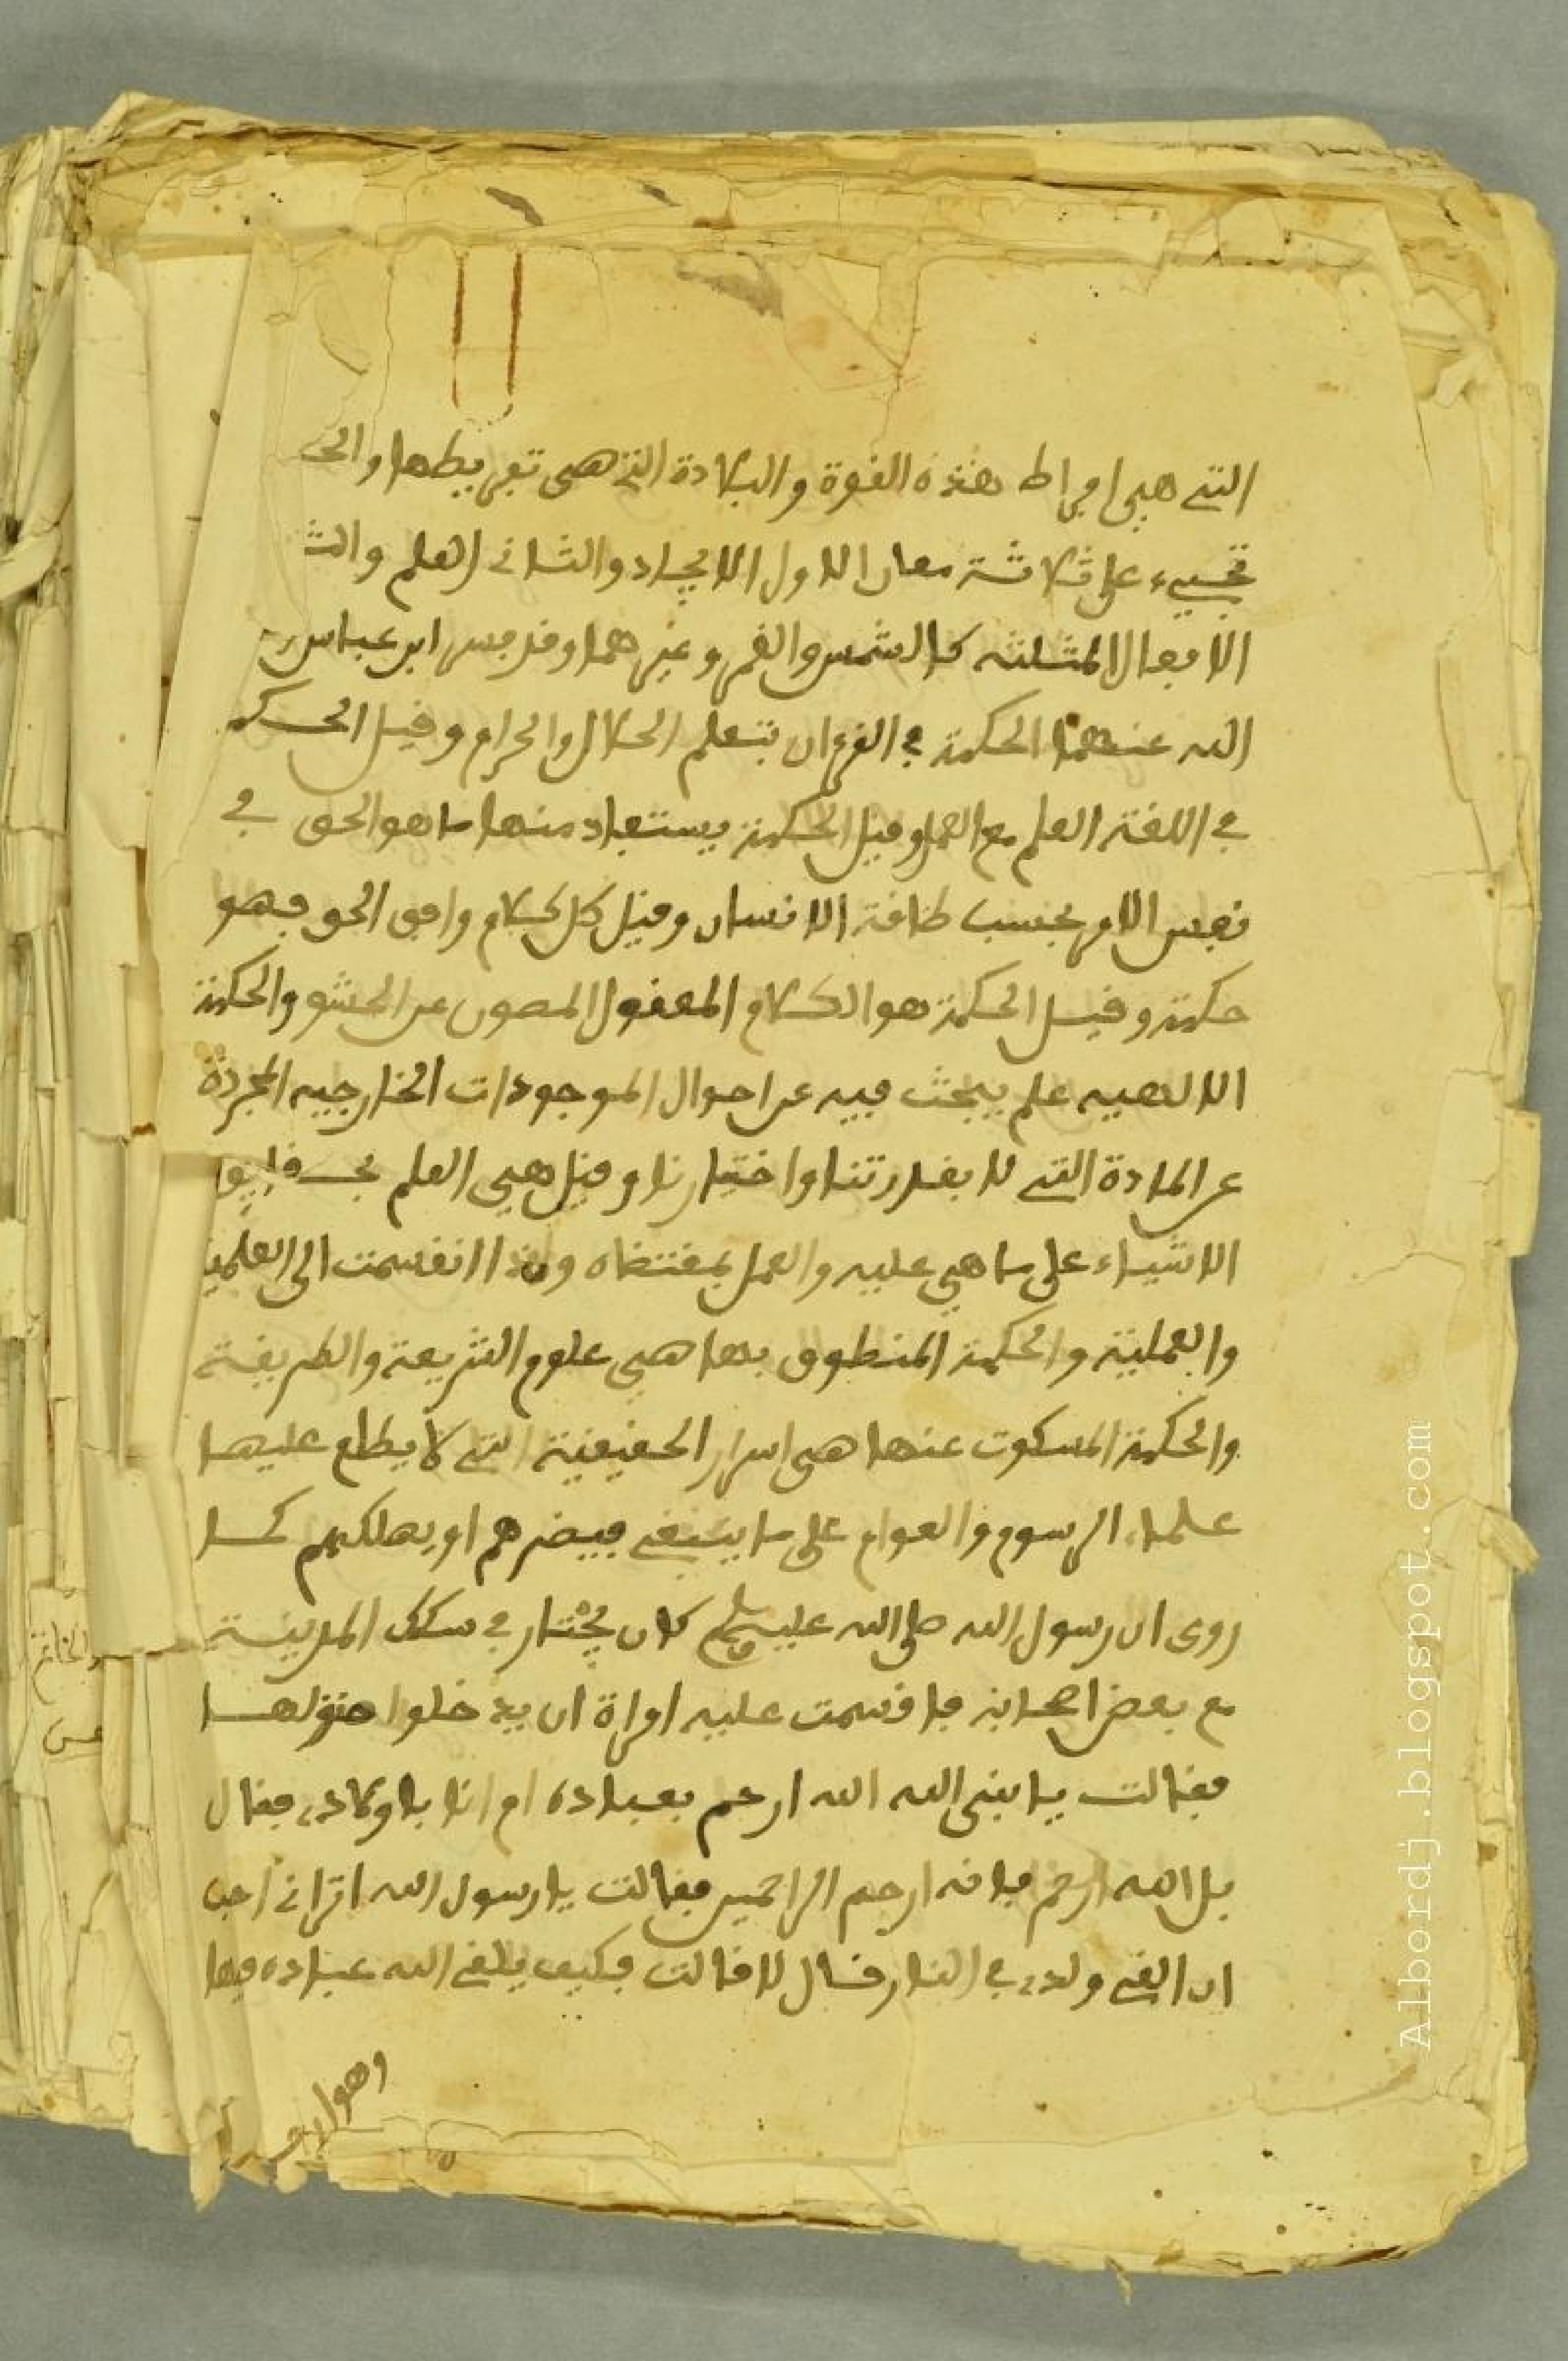 التي هي افراط هذه القوة والبلادة التي هي تفريطها والحك
تجيء على ثلاثة معان الاول الايجاد والثاني العلم والث
الافعال المثلثه كالشمس والقمر وغيرهما وقد فسر ابن عباس
الله عنهما الحكمة في القرءان بتعلم الحلال والحرام وقيل الحكم
في اللغة العلم مع العمل وقيل الحكمة يستفاد منها ما هو الحق في
نفس الامر بحسب طاقة الانسان وقيل كل كلام وافق الحق فهو
حكمة وقيل الحكمة هو الكلام المعقول المصون عن الحشو والحكمة
الالهيه علم يبحث فيه عن احوال الموجودات الخارجيه المجردة
عن المادة التي لا بقدرتنا واختيارنا وقيل هي العلم بحقايق
الاشياء على ما هي عليه والعمل بمقتضاه ولذا انقسمت الى العلمية
والعملية والحكمة المنطوق بها هي علوم الشريعة والطريقة
والحكمة المسكوت عنها هي اسرار الحقيقية التي لا يطلع عليها
علماء الرسوم والعوام على ما ينبغي فيضرهم او يهلكهم كما
روى ان رسول الله صلى الله عليه وسلم كان يجتاز في سكك المدينة
مع بعض اصحابه فاقسمت عليه امراة ان يدخلوا منزلها
فقالت يا نبي الله الله ارحم بعباده ام انا باولادي فقال
بل الله ارحم فانه ارحم الراحمين فقالت يا رسول الله اتراني احب
ان القي ولدي في النار قال لا قالت فكيف يلقي الله عباده فيها
وهو ارحم
Albordj.blogspot.com